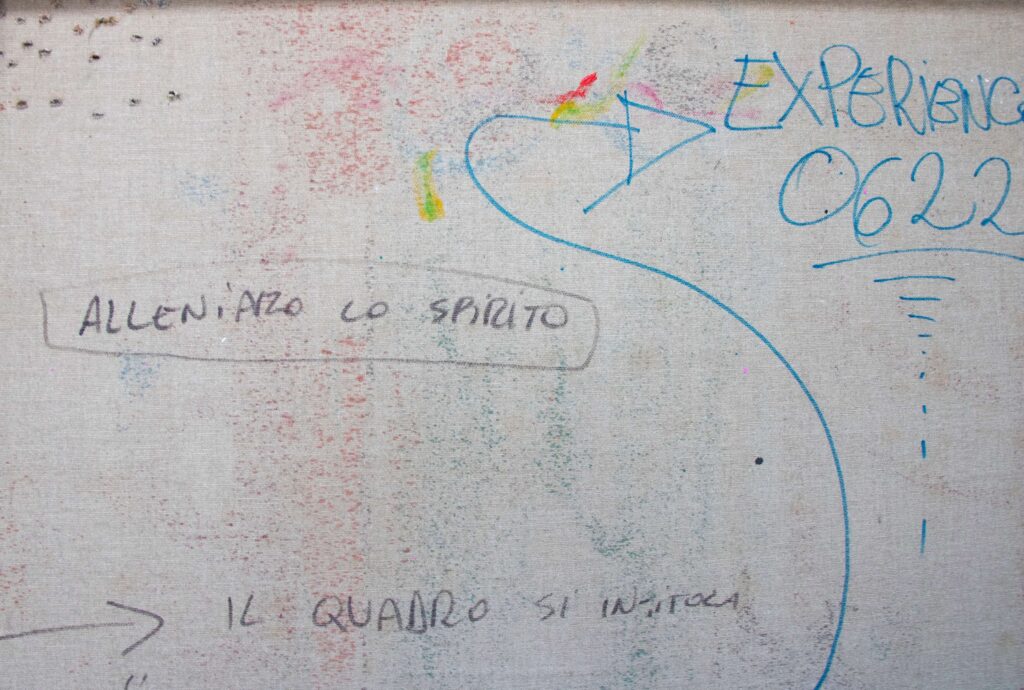 EXPERIENC
0622
ALLENIAMO LO SPIRITO
IL QUADRO SI INTITOLA